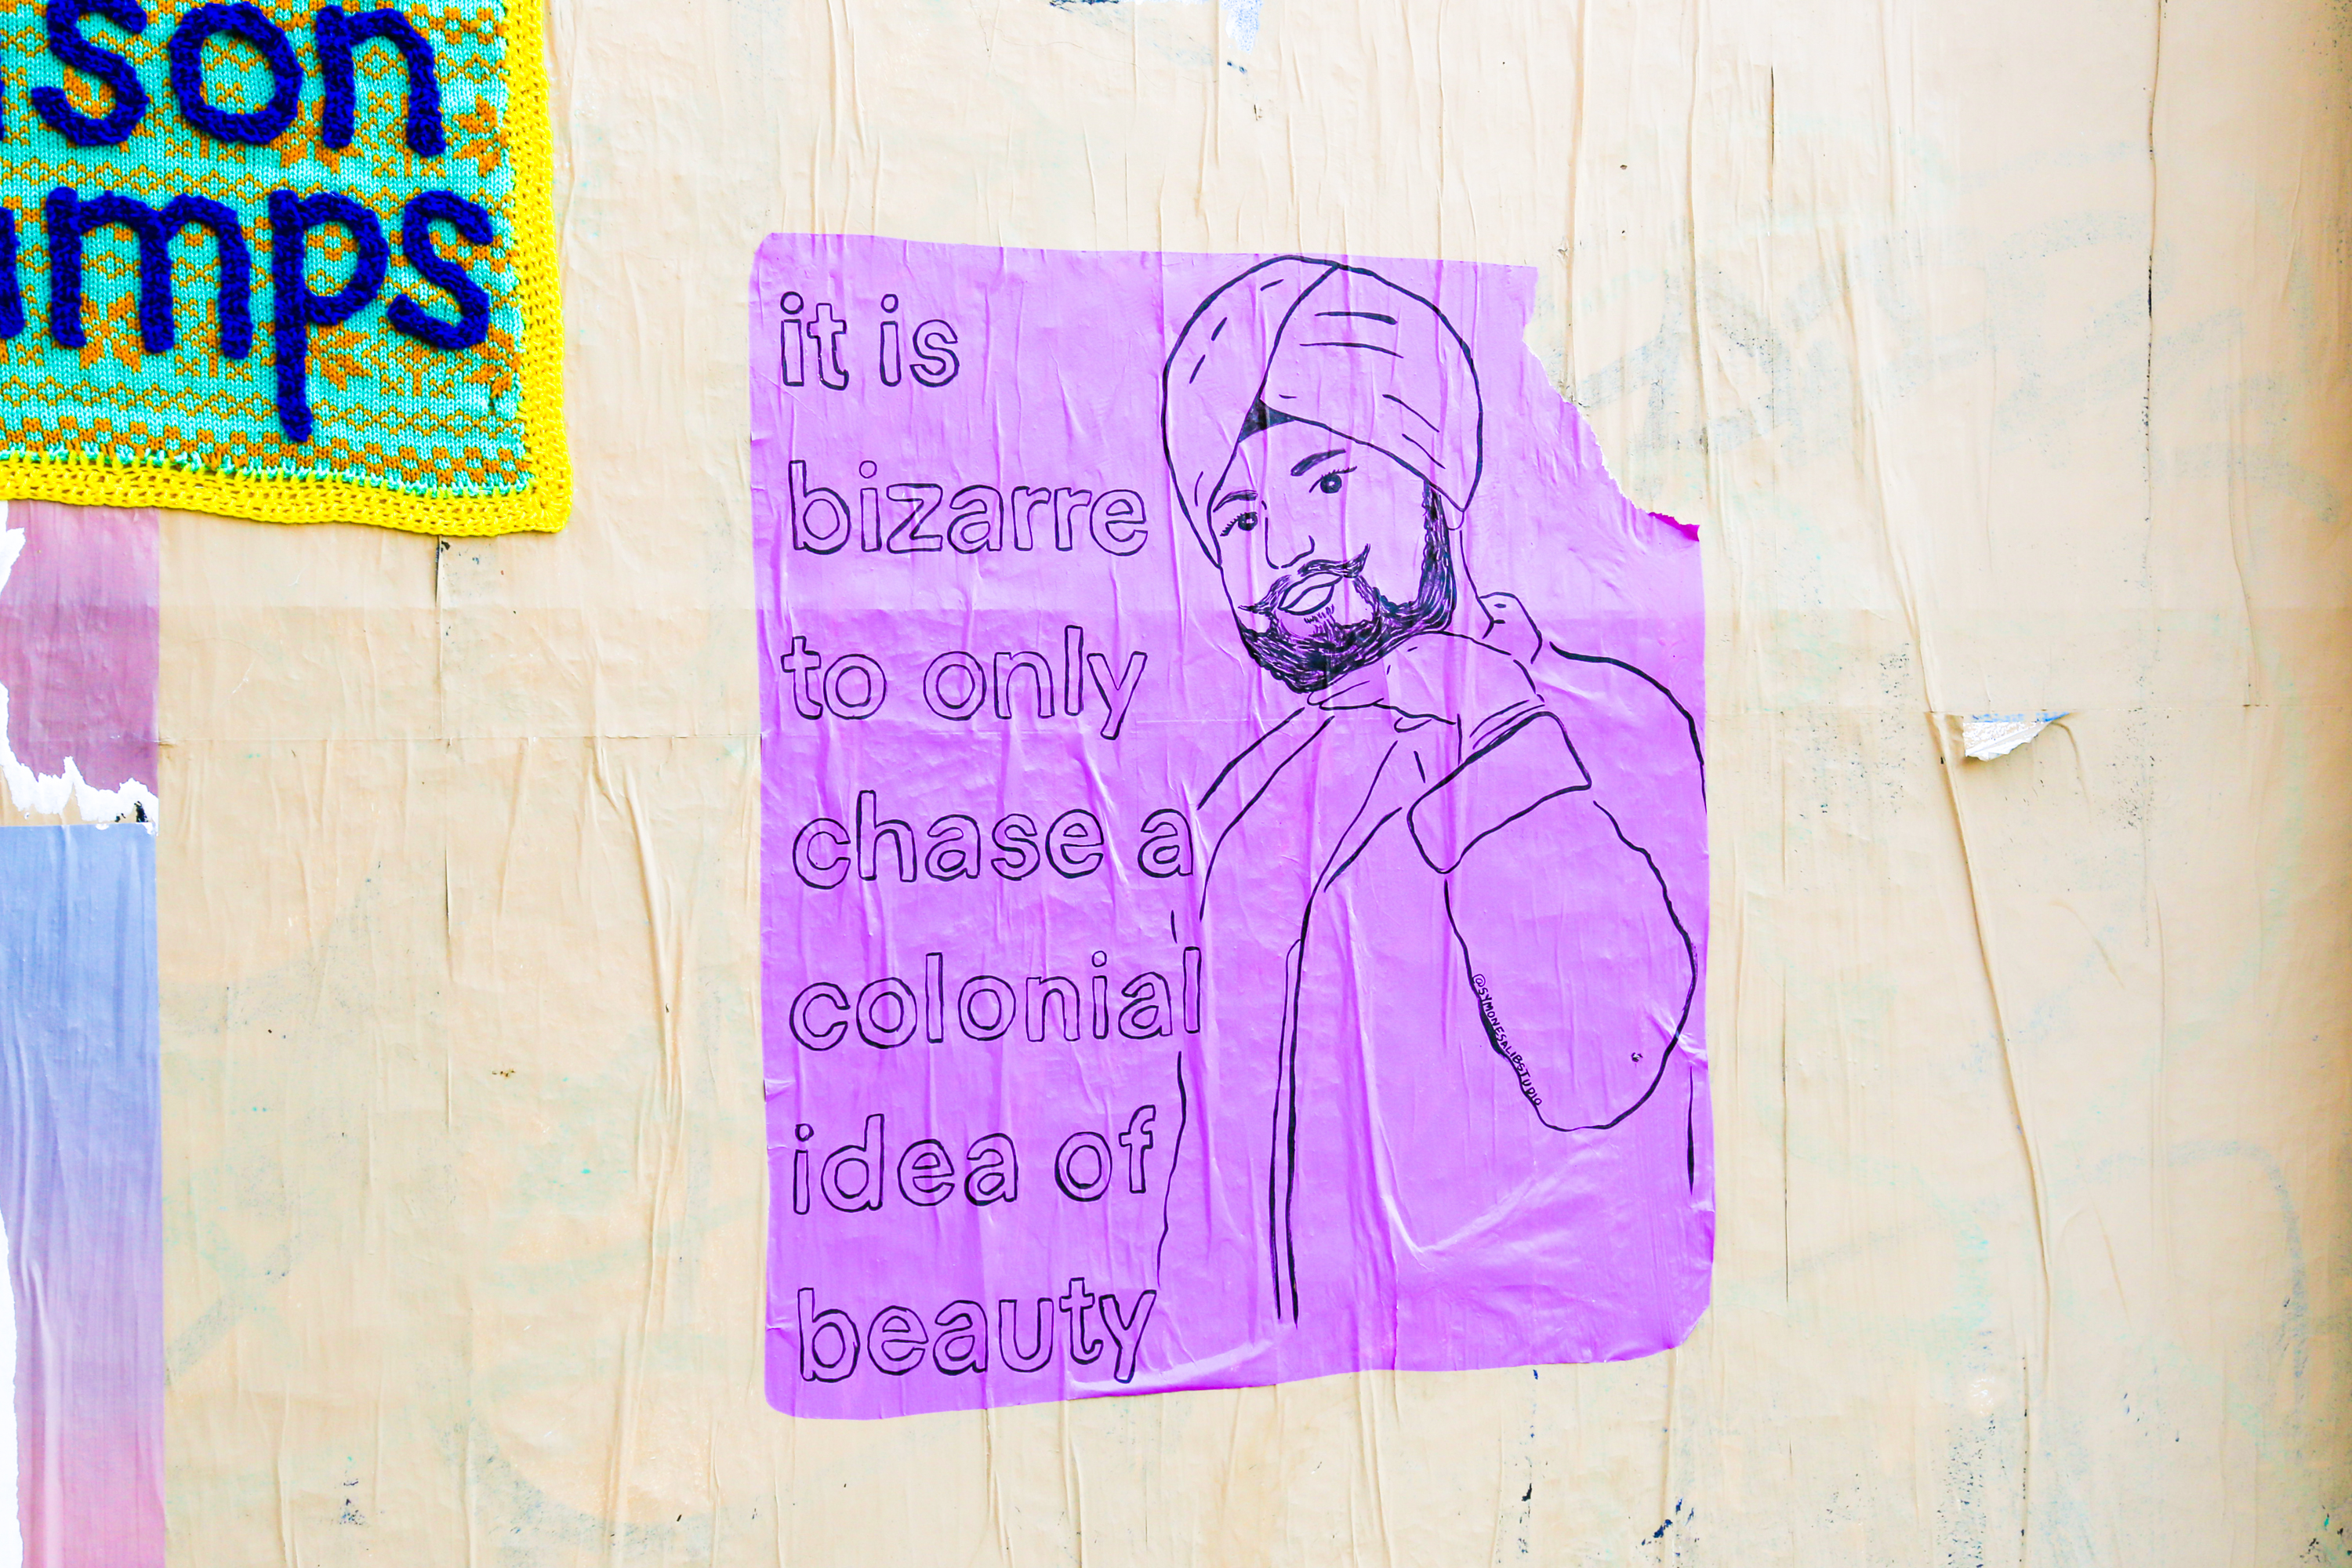 son
mps
it is
bizarre
to only
chase a
colonial
idea of
beauty
@SYMONESALIBSTUDIO